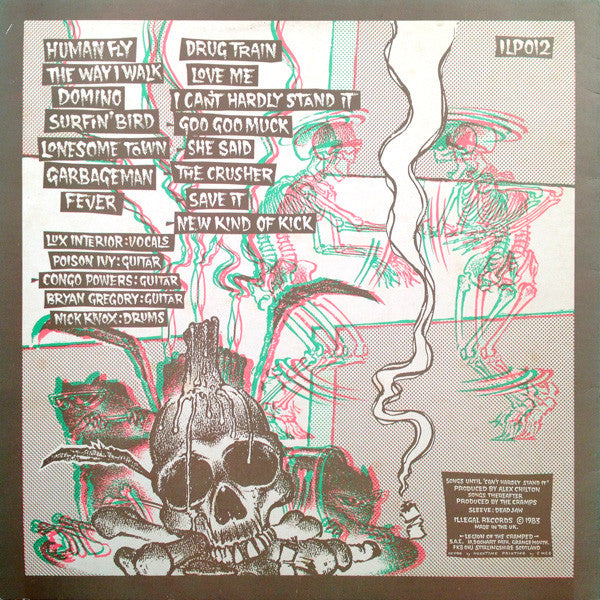 HUMAN FLY
THE WAY I WALK
DOMINO
SURFIN' BIRD
LONESOME TOWN
GARBAGEMAN
FEVER
DRUG TRAIN
LOVE ME
I CAN'T HARDLY STAND IT
GOO GOO MUCK
SHE SAID
THE CRUSHER
SAVE IT
NEW KIND OF KICK
LUX INTERIOR: VOCALS
POISON IVY: GUITAR
CONGO POWERS: GUITAR
BRYAN GREGORY: GUITAR
NICK KNOX: DRUMS
ILP012
SONGS UNTIL 'CAN'T HARDLY STAND IT'
PRODUCED BY ALEX CHILTON
SONGS THEREAFTER
PRODUCED BY THE CRAMPS
SLEEVE: DEAD JAW
ILLEGAL RECORDS © 1983
MADE IN THE U.K.
LEGION OF THE CRAMPED
S.A.E.
GRANGEMOUTH,
STIRLINGSHIRE SCOTLAND